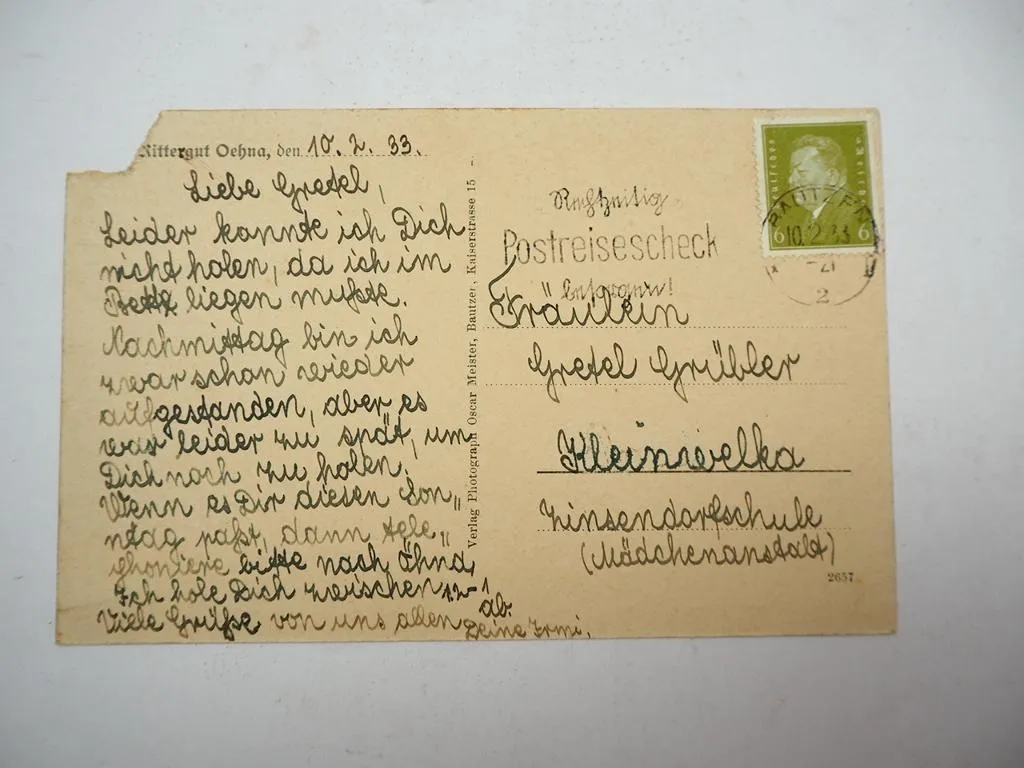 Rittergut Oehna, den 10. 2. 33.
Liebe Gretel,
Leider konnte ich Dich
nicht holen, da ich im
Bette liegen mußte.
Nachmittag bin ich
zwar schon wieder
aufgestanden, aber es
war leider zu spät, um
Dich noch zu holen.
Wenn es Dir diesen Son„
ntag paßt, dann tele„
phoniere bitte nach Öhna,
Ich hole Dich zwischen 12-1
ab.
Viele Grüße von uns allen
Deine Irmi.
Verlag Photograph Oscar Meister, Bautzen, Kaiserstrasse 15
Rechtzeitig
Postreisescheck
besorgen!
BAUTZEN
10.2.33
-21
2
6 6
Fräulein
Gretel Grübler
Kleinwelka
Zinsendorfschule
(Mädchenanstalt)
2657